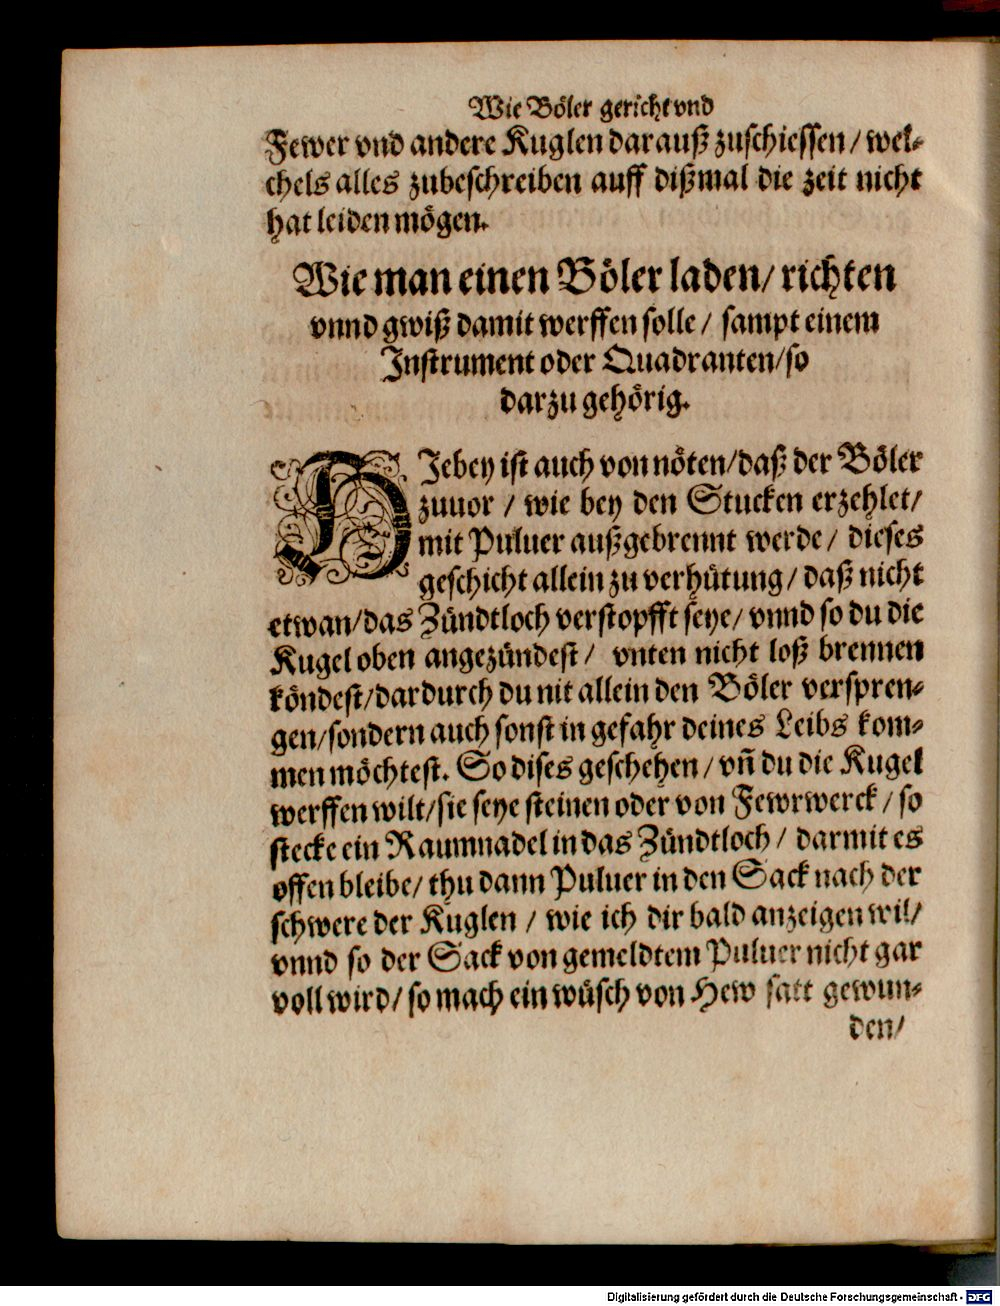 Wie Böler gericht vnd
Fewer vnd andere Kuglen darauß zuschiessen / wel-
chels alles zubeschreiben auff dißmal die zeit nicht
hat leiden mögen.
Wie man einen Böler laden / richten
vnnd gwiß damit werffen solle / sampt einem
Instrument oder Quadranten / so
darzu gehörig.
HJebey ist auch von nöten / daß der Böler
zuuor / wie bey den Stucken erzehlet /
mit Puluer außgebrennt werde / dieses
geschicht allein zu verhütung / daß nicht
etwan / das Zündtloch verstopfft seye / vnnd so du die
Kugel oben angezündest / vnten nicht loß brennen
köndest / dardurch du nit allein den Böler verspren-
gen / sondern auch sonst in gefahr deines Leibs kom-
men möchtest. So dises geschehen / vñ du die Kugel
werffen wilt / sie seye steinen oder von Fewrwerck / so
stecke ein Raumnadel in das Zündtloch / darmit es
offen bleibe / thu dann Puluer in den Sack nach der
schwere der Kuglen / wie ich dir bald anzeigen wil /
vnnd so der Sack von gemeldtem Puluer nicht gar
voll wird / so mach ein wüsch von Hew satt gewun-
den /
Digitalisierung gefördert durch die Deutsche Forschungsgemeinschaft - DFG